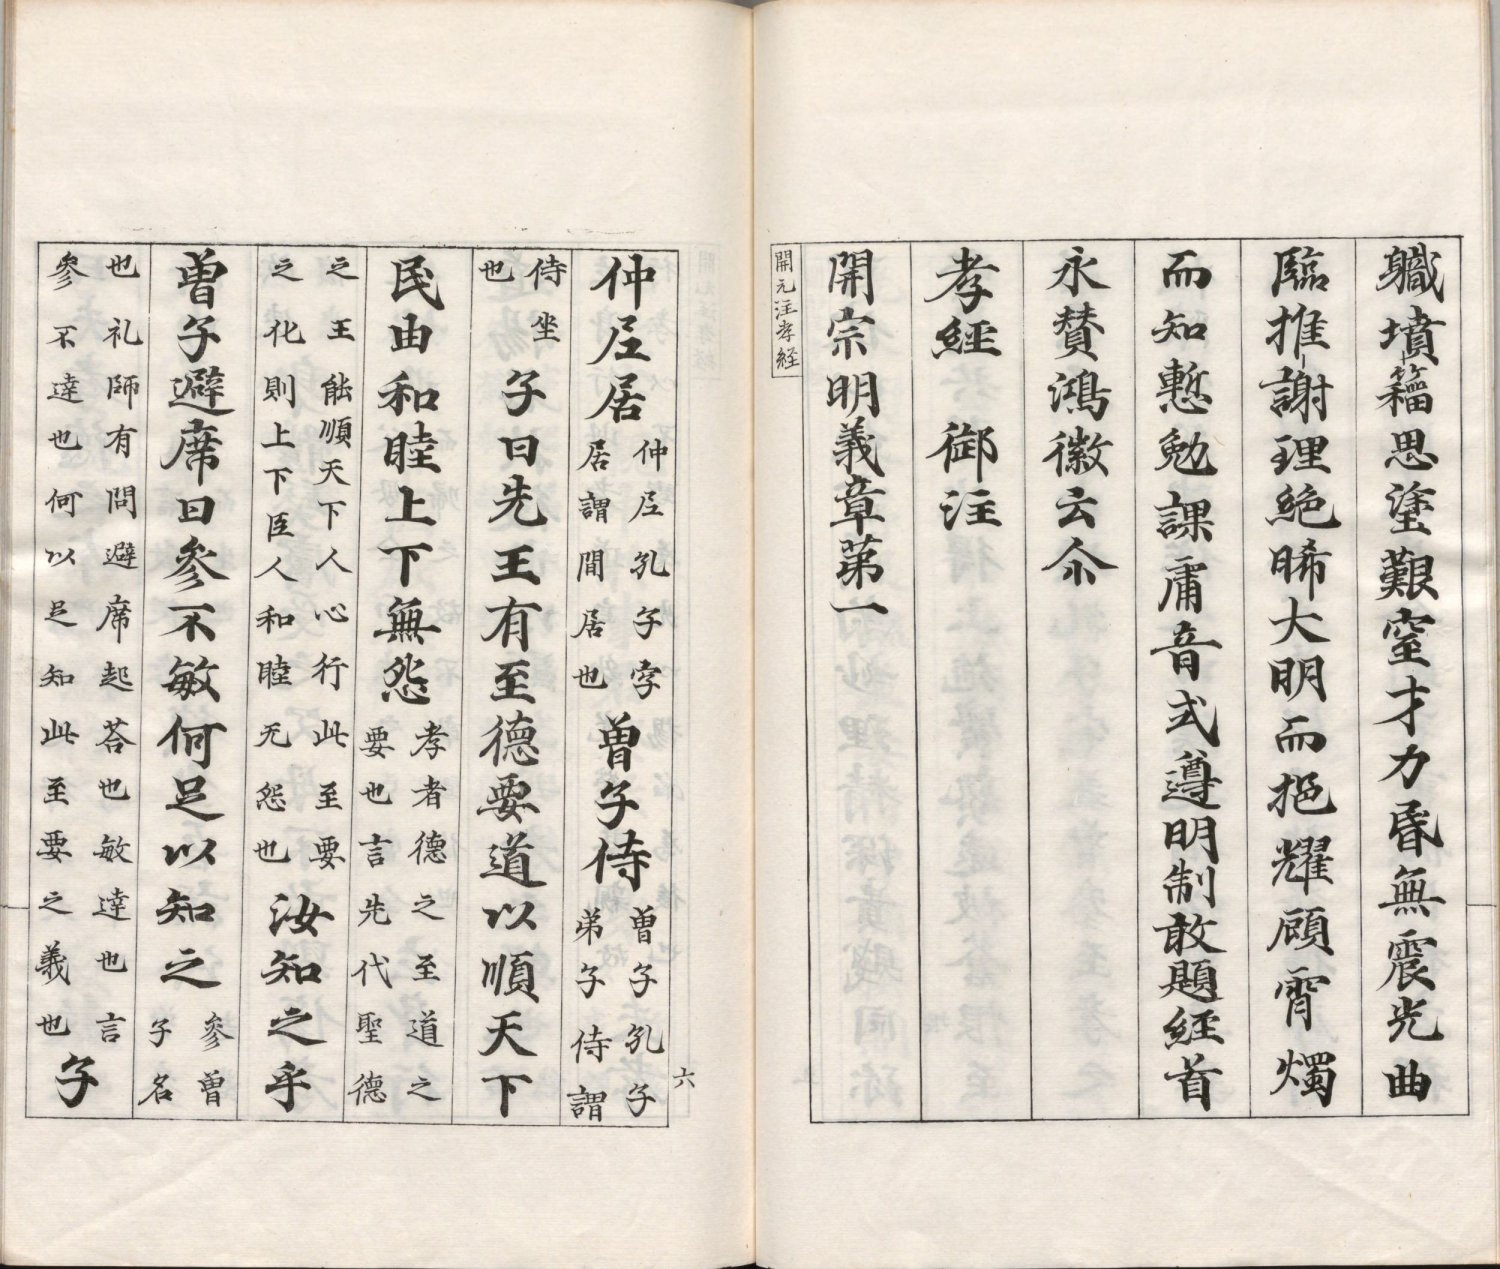 軄墳籒思塗艱窒才力昏無震光曲
臨推謝理絶晞大明而挹耀顧霄燭
而知慙勉課庸音式遵明制敢題經首
永賛鴻徽云尒
孝經 御注
開宗明義章第一
開元注孝経
六
仲尼居 仲尼孔子字居謂閒居也 曽子侍 曽子孔子弟子侍謂
侍坐也 子曰先王有至德要道以順天下
民由和睦上下無怨 孝者德之至道之要也言先代聖德
之王能順天下人心行此至要之化則上下臣人和睦无怨也 汝知之乎
曽子避席曰參不敏何足以知之 參曽子名
也礼師有問避席起荅也敏達也言參不達也何以足知此至要之義也 子